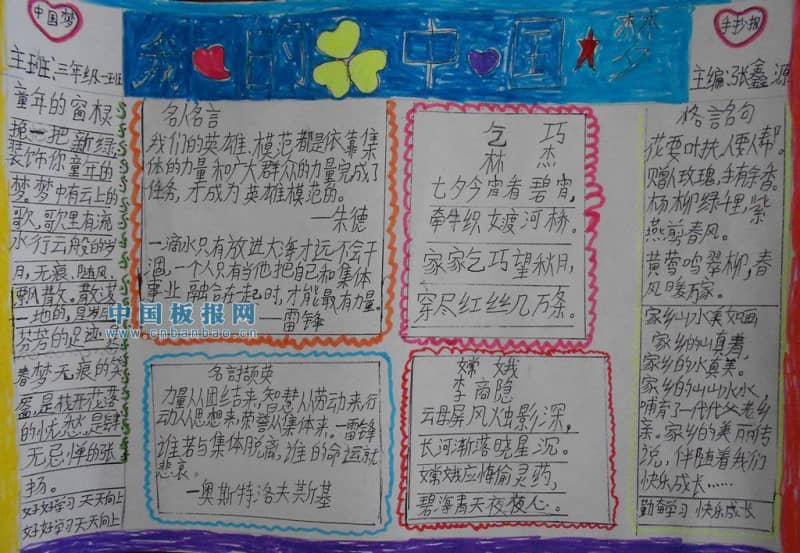 中国梦
我的中国梦
手抄报
主班:三年级一班
主编:张鑫源
童年的窗棂
挽一把新绿
装饰你童年的
梦。梦中有云上的
歌,歌里有流
水行云般的岁
月,无痕,随风
飘散。散落
一地的,是岁月
芬芳的足迹
春梦无痕的笑
盈,是枝形花落
的忧愁,是肆
无忌惮的张
扬。
好好学习天天向上
好好学习天天向上
名人名言
我们的英雄、模范都是依靠集
体的力量和广大群众的力量完成了
任务,才成为英雄模范的。
—朱德
一滴水只有放进大海才远不会干
涸,一个人只有当他把自己和集体
事业融合在起时,才能最有力量。
—雷锋
名言撷英
力量从团结来,智慧从劳动来行
动从思想来,荣誉从集体来。—雷锋
谁若与集体脱离,谁的命运就
悲哀。
—奥斯特洛夫斯基
乞巧
林杰
七夕今宵看碧霄,
牵牛织女渡河桥。
家家乞巧望秋月,
穿尽红丝几万条。
嫦娥
李商隐
云母屏风烛影深,
长河渐落晓星沉。
嫦娥应悔偷灵药,
碧海青天夜夜心。
格言名句
花要叶扶,人要人帮。
赠人玫瑰,手有余香。
杨柳绿千里,紫
燕剪春风。
黄莺鸣翠柳,春
风暖万家。
家乡山水美如画
家乡的山真青,
家乡的水真美。
家乡的山山水水,
哺育了一代代父老乡
亲。家乡的美丽传
说,伴随着我们
快乐成长……
勤奋学习 快乐成长
中国板报网
www.cnbanbao.cn